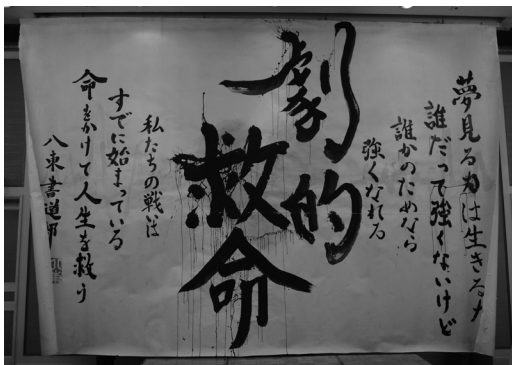 夢見る力は生きる力
誰だって強くないけど
誰かのためなら
強くなれる
劇的
救命
私たちの戦は
すでに始まっている
命をかけて人生を救う
八束書道部